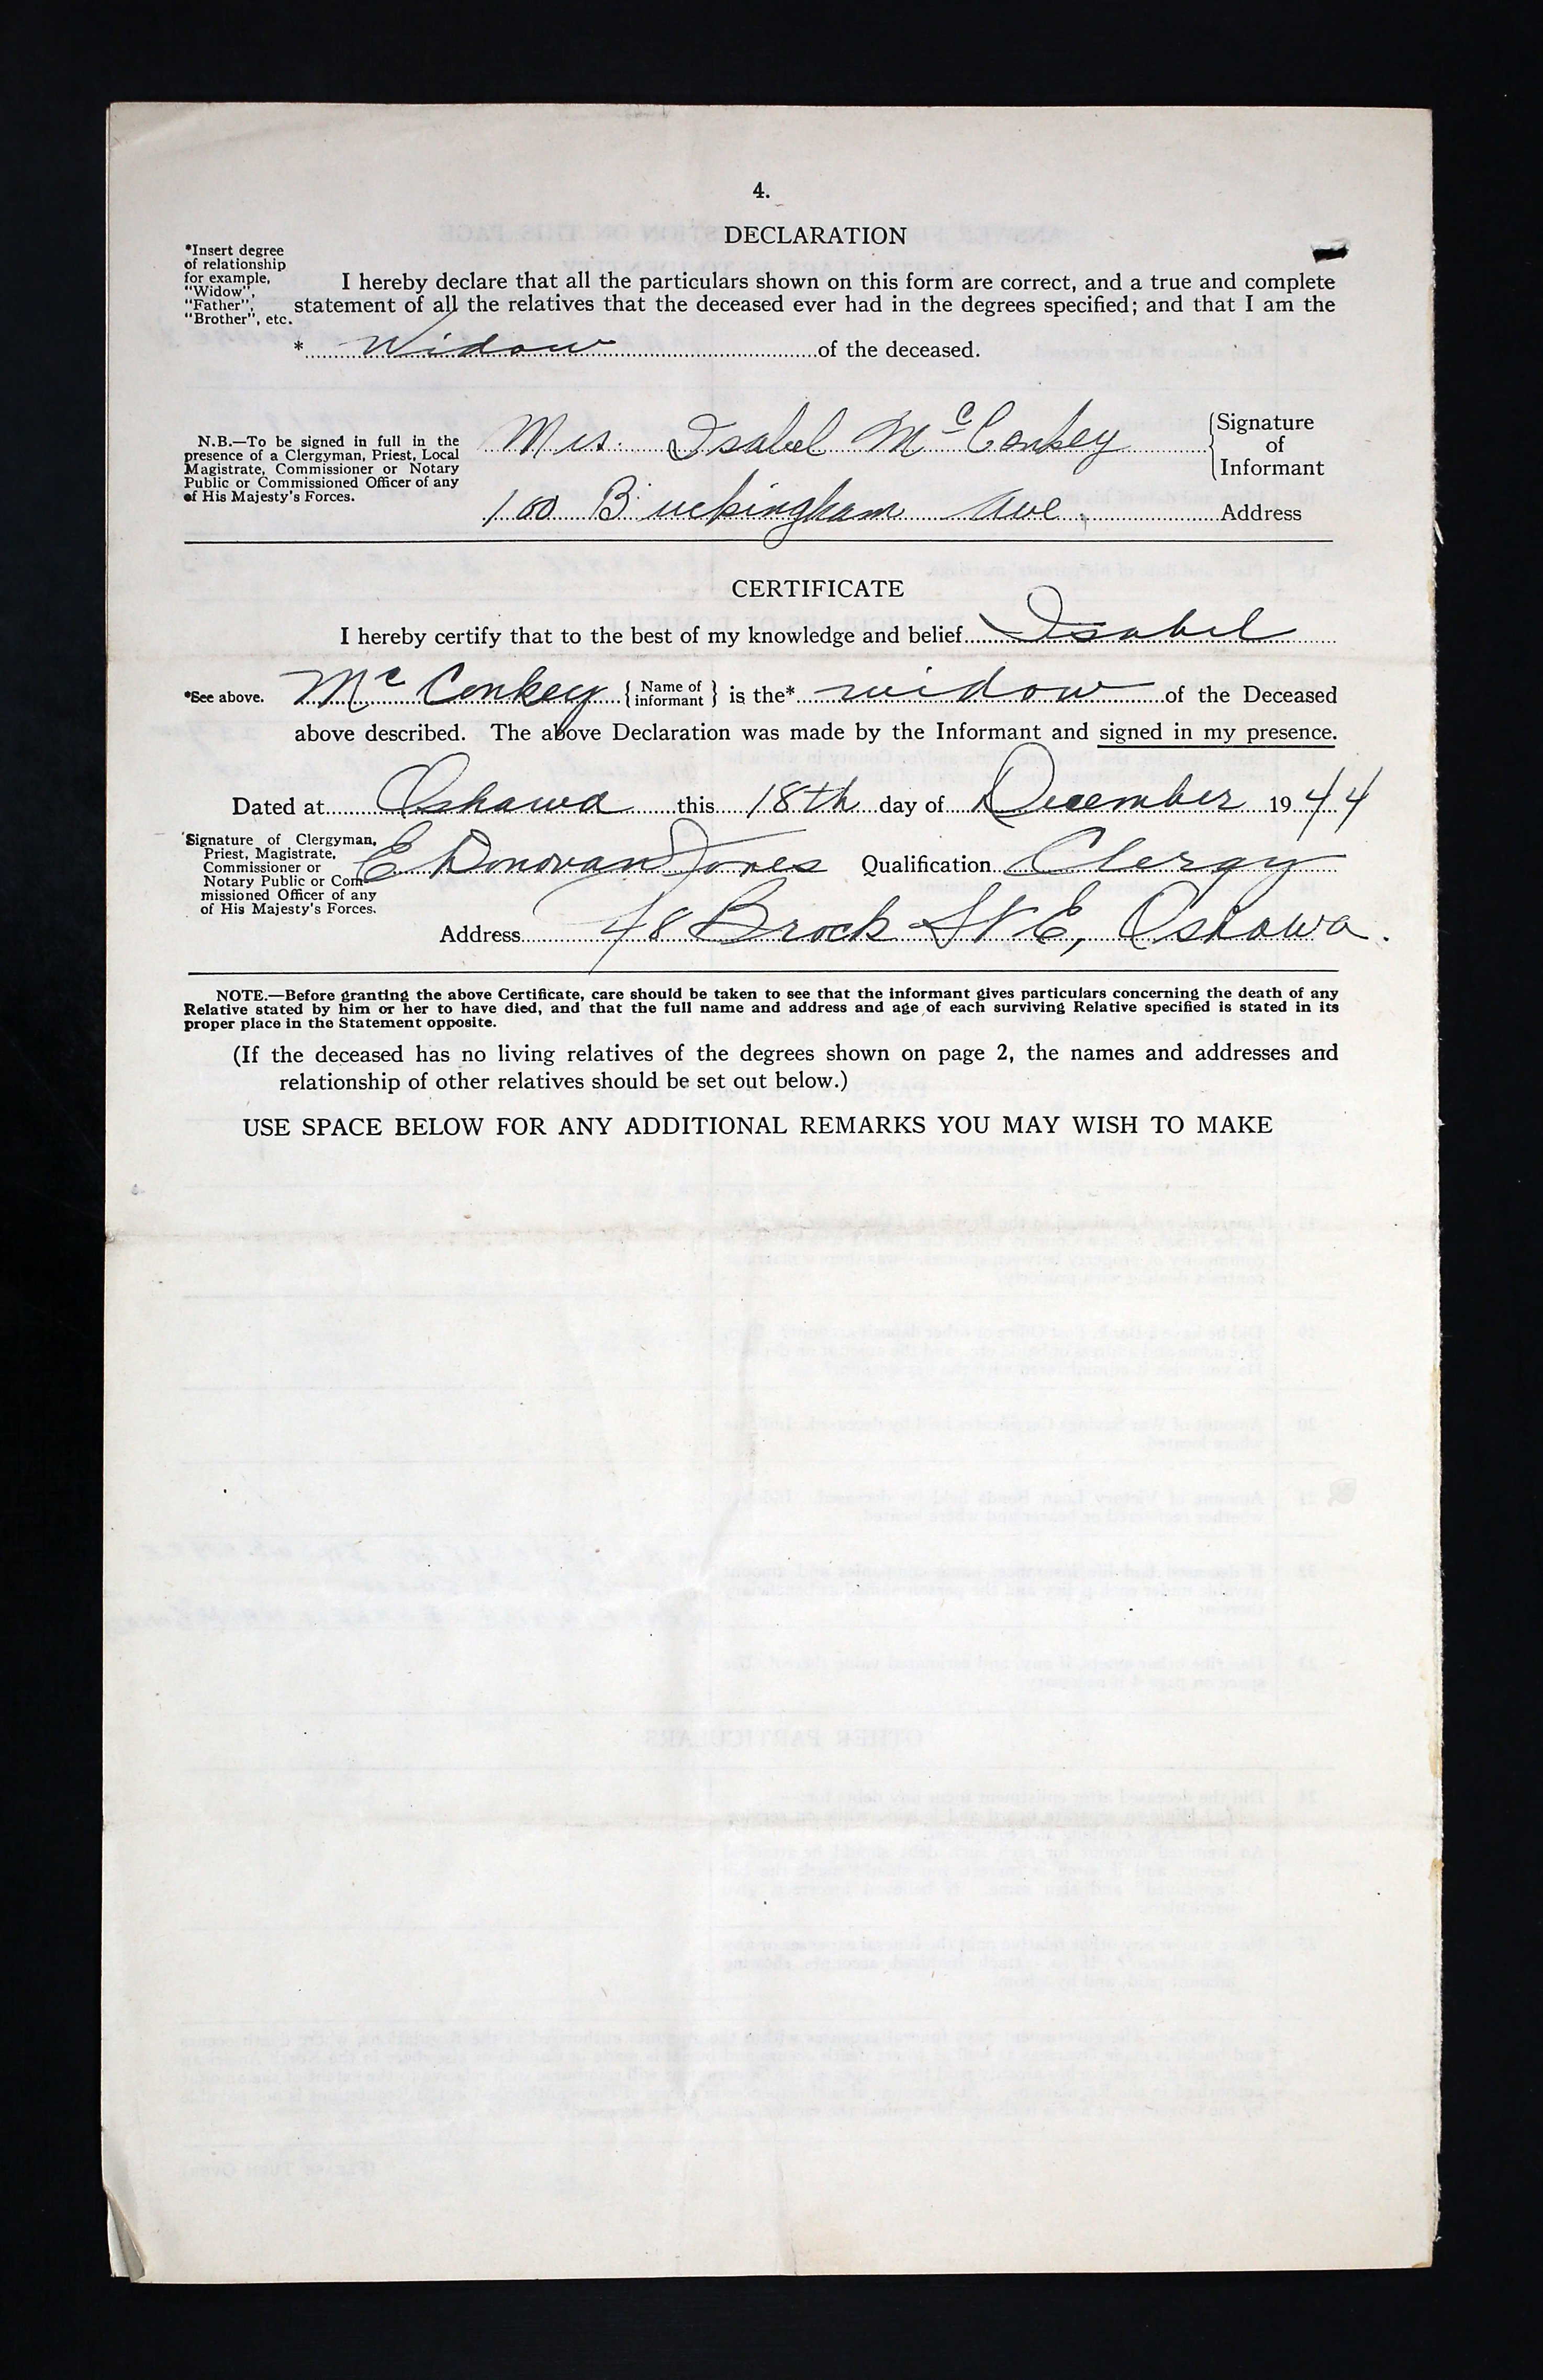 4.
DECLARATION
*Insert degree
of relationship
for example,
"Widow",
"Father",
"Brother", etc.
I hereby declare that all the particulars shown on this form are correct, and a true and complete
statement of all the relatives that the deceased ever had in the degrees specified; and that I am the
* Widow of the deceased.
N.B.—To be signed in full in the
presence of a Clergyman, Priest, Local
Magistrate, Commissioner or Notary
Public or Commissioned Officer of any
of His Majesty's Forces.
Mrs. Isabel McConkey
Signature
of
Informant
100 Buckingham Ave. Address
CERTIFICATE
I hereby certify that to the best of my knowledge and belief Isabel
*See above. McConkey { Name of informant } is the* widow of the Deceased
above described. The above Declaration was made by the Informant and signed in my presence.
Dated at Oshawa this 18th day of December 1944
Signature of Clergyman,
Priest, Magistrate,
Commissioner or
Notary Public or Com
missioned Officer of any
of His Majesty's Forces.
E Donovan Jones Qualification Clergy
Address 48 Brock St E, Oshawa.
NOTE.—Before granting the above Certificate, care should be taken to see that the informant gives particulars concerning the death of any
Relative stated by him or her to have died, and that the full name and address and age of each surviving Relative specified is stated in its
proper place in the Statement opposite.
(If the deceased has no living relatives of the degrees shown on page 2, the names and addresses and
relationship of other relatives should be set out below.)
USE SPACE BELOW FOR ANY ADDITIONAL REMARKS YOU MAY WISH TO MAKE